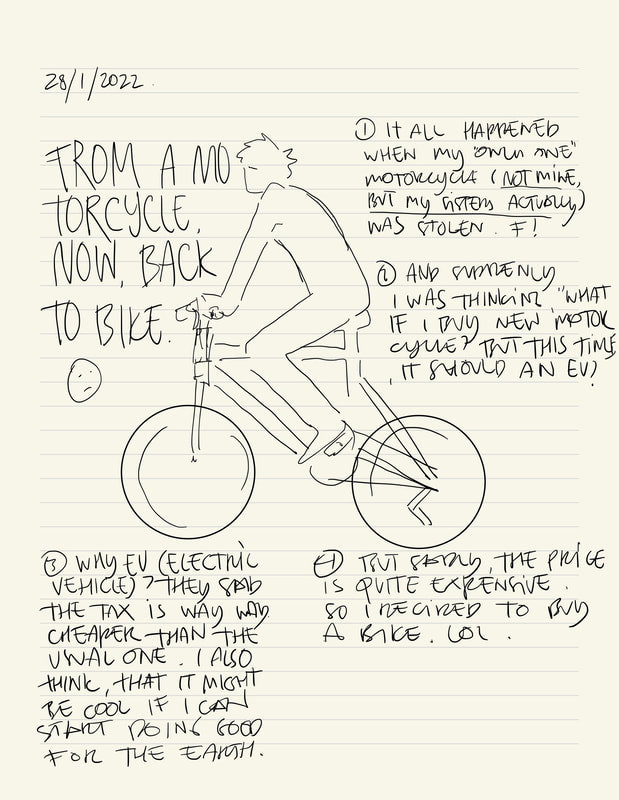 28/1/2022.
FROM A MO
TORCYCLE,
NOW, BACK
TO BIKE.
① IT ALL HAPPENED
WHEN MY "ONLY ONE"
MOTORCYCLE (NOT MINE,
BUT MY SISTERS ACTUALLY)
WAS STOLEN. F!
② AND SUDDENLY
I WAS THINKING "WHAT
IF I BUY NEW MOTOR
CYCLE? BUT THIS TIME
, IT SHOULD AN EV?
③ WHY EV (ELECTRIC
VEHICLE)? THEY SAID
THE TAX IS WAY WAY
CHEAPER THAN THE
USUAL ONE. I ALSO
THINK, THAT IT MIGHT
BE COOL IF I CAN
START DOING GOOD
FOR THE EARTH.
④ BUT SADLY, THE PRICE
IS QUITE EXPENSIVE.
SO I DECIDED TO BUY
A BIKE. LOL.